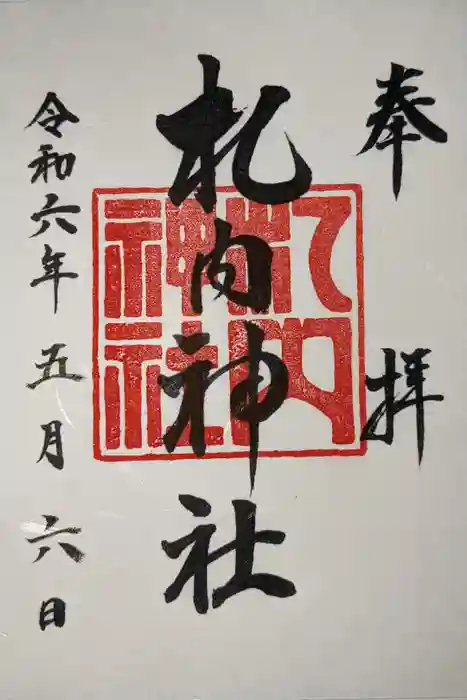 奉拝
札内神社
札内神社
令和六年五月六日